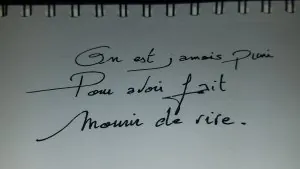 On est jamais puni
Pour avoir fait
Mourir de rire.